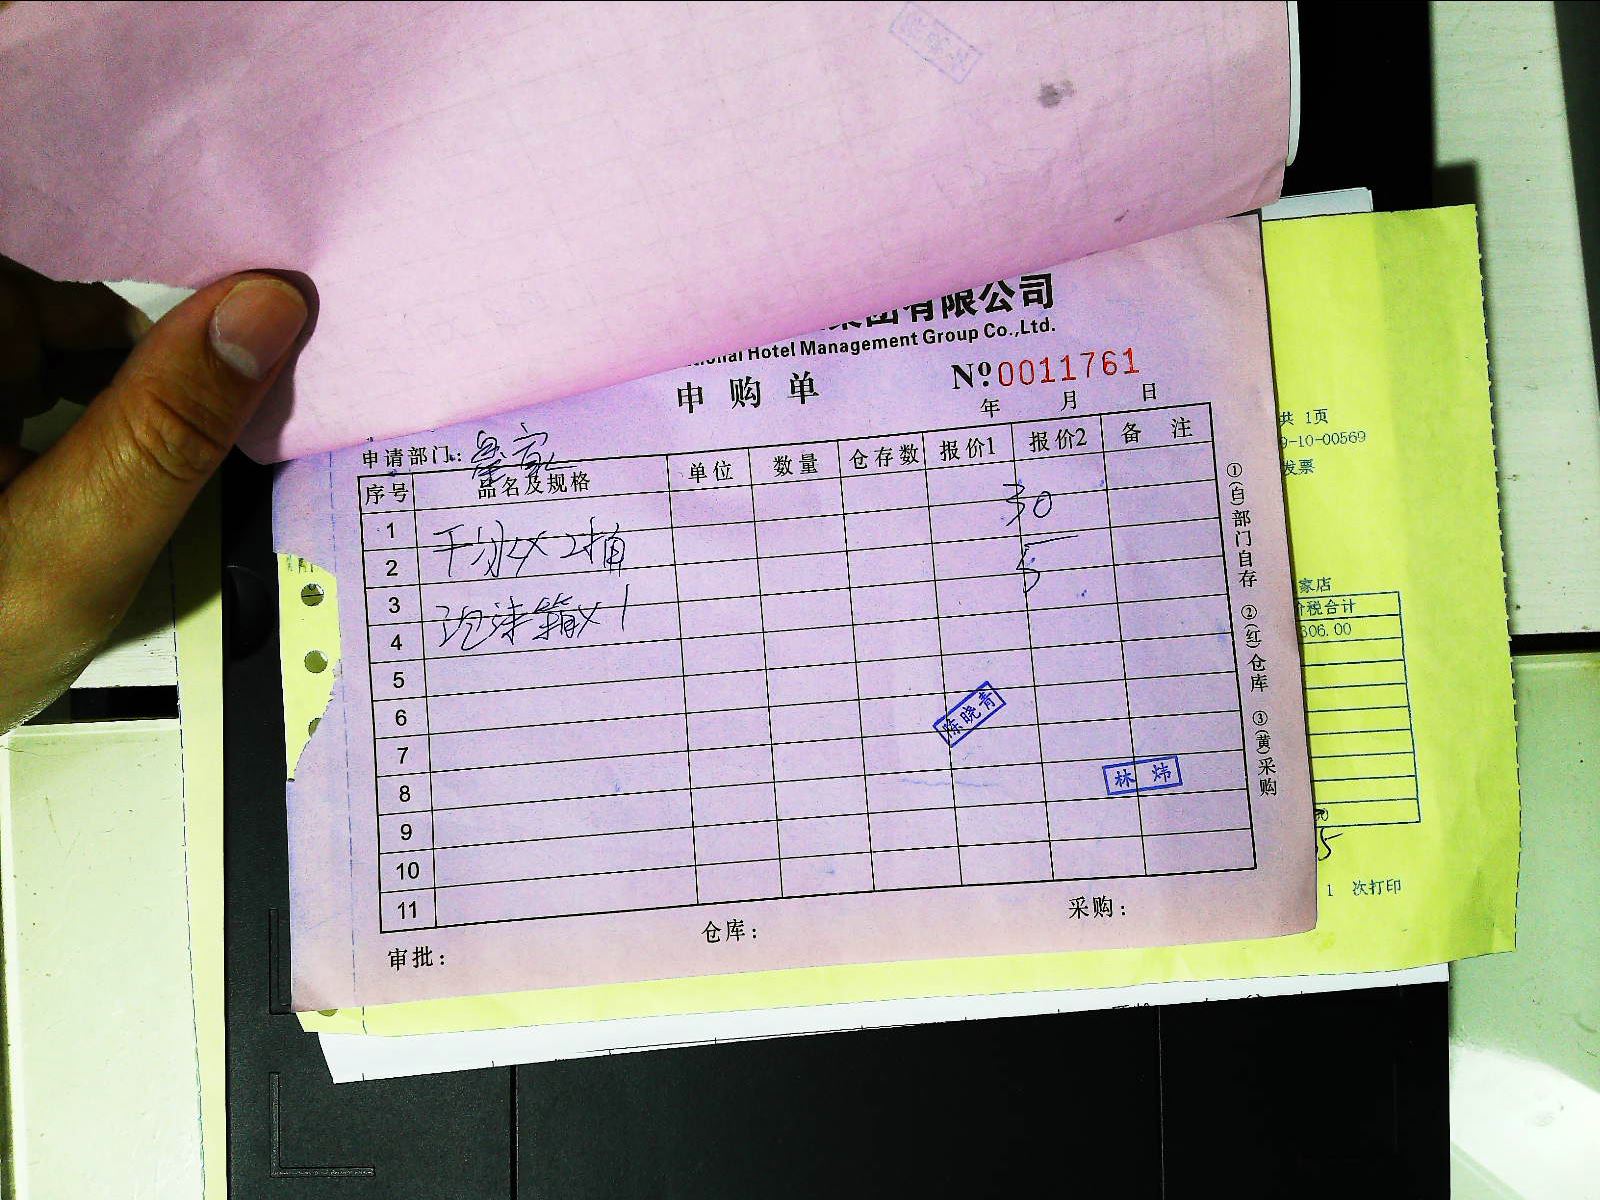 集团有限公司
Hotel Management Group Co.,Ltd.
申购单
Nº 0011761
年 月 日
申请部门:
序号 品名及规格 单位 数量 仓存数 报价1 报价2 备注
1 30
2 干冰 X 2
3 5
4 泡沫箱X1
5
6
7
8
9
10
11
陈晓青
林炜
审批: 仓库: 采购:
①(白)部门自存 ②(红)仓库 ③(黄)采购
共 1页
9-10-00569
发票
家店
价税合计
306.00
1 次打印